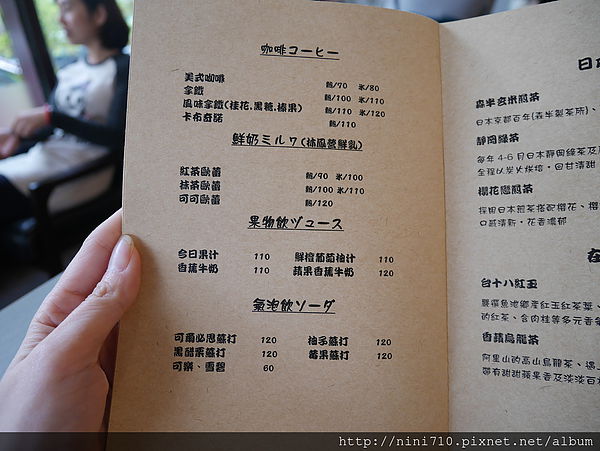 咖啡コーヒー
美式咖啡 熱/70 氷/80
拿鐵 熱/100 氷/110
風味拿鐵(桂花.黑糖.榛果) 熱/110 氷/120
卡布奇諾 熱/110
鮮奶ミルク(林鳳營鮮乳)
紅茶歐蕾 熱/90 氷/100
抹茶歐蕾 熱/100 氷/110
可可歐蕾 熱/120
果物飲ヅュース
今日果汁 110 鮮橙葡萄柚汁 110
香蕉牛奶 110 蘋果香蕉牛奶 120
氣泡飲ソーダ
可爾必思蘇打 120 柚子蘇打 120
黑醋栗蘇打 120 莓果蘇打 120
可樂、雪碧 60
日
森半玄米煎茶
日本京都百年(森半製茶所)、
靜岡綠茶
每年4-6月日本靜岡綠茶及
全程以炭火烘焙。回甘清甜
櫻花戀煎茶
採用日本煎茶搭配櫻花、櫻
口感清新,花香濃郁
在
台十八紅玉
嚴選魚池鄉產紅玉紅茶葉、
的紅茶、含肉桂等多元香氣
香蘋烏龍茶
阿里山的高山烏龍茶、遇上
帶有甜甜蘋果香及淡淡百
http://nini710.pixnet.net/album